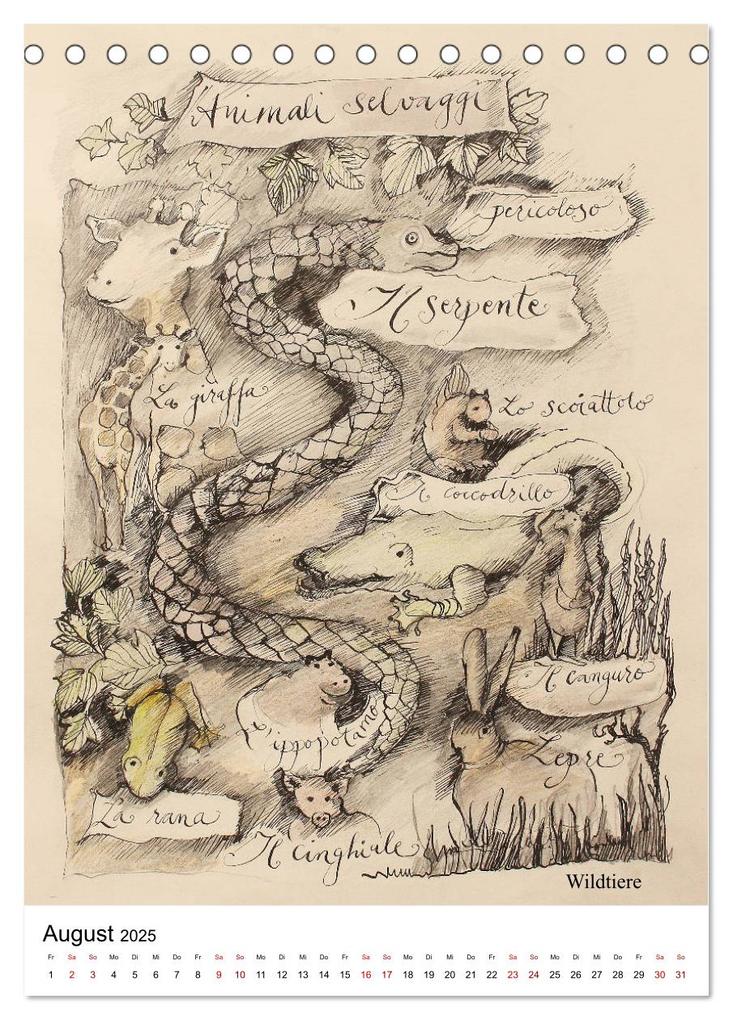 Animali selvaggi
pericoloso
Il serpente
La giraffa
Lo scoiattolo
Il coccodrillo
Il canguro
L'ippopotamo
Lepre
La rana
Il cinghiale
Wildtiere
August 2025
Fr Sa So Mo Di Mi Do Fr Sa So Mo Di Mi Do Fr Sa So Mo Di Mi Do Fr Sa So Mo Di Mi Do Fr Sa So
1 2 3 4 5 6 7 8 9 10 11 12 13 14 15 16 17 18 19 20 21 22 23 24 25 26 27 28 29 30 31